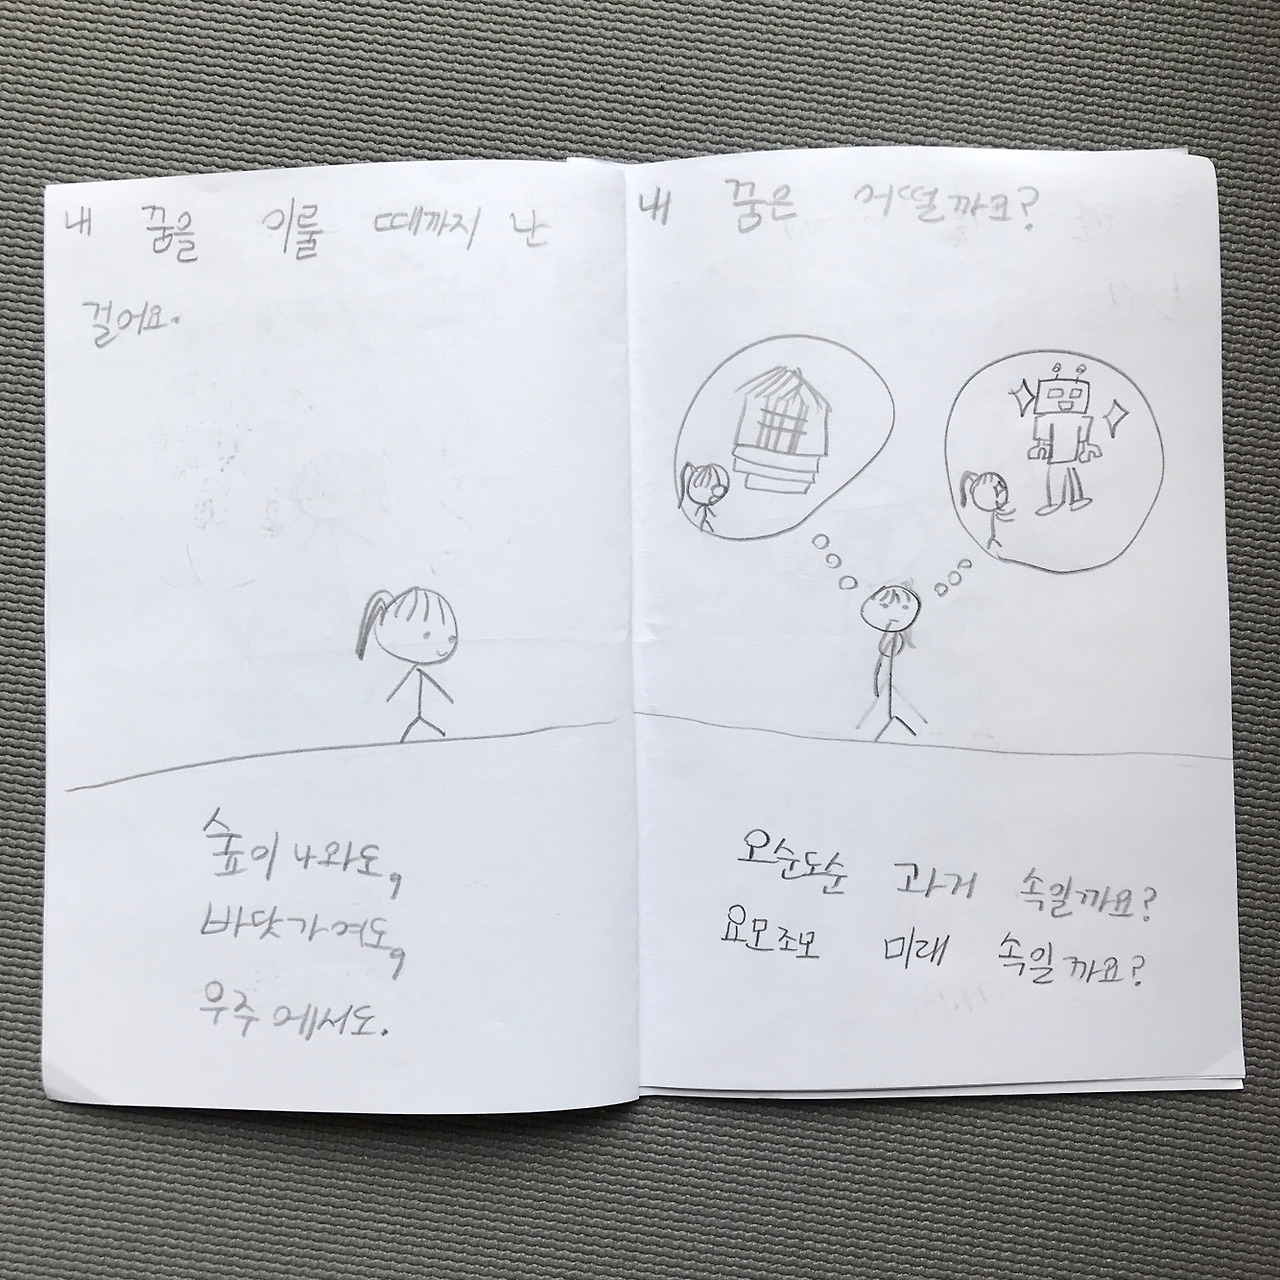 내 꿈을 이룰 때까지 난
걸어요.
숲이 나와도,
바닷가여도,
우주에서도.
내 꿈은 어떨까요?
오순도순 과거 속일까요?
요모조모 미래 속일까요?